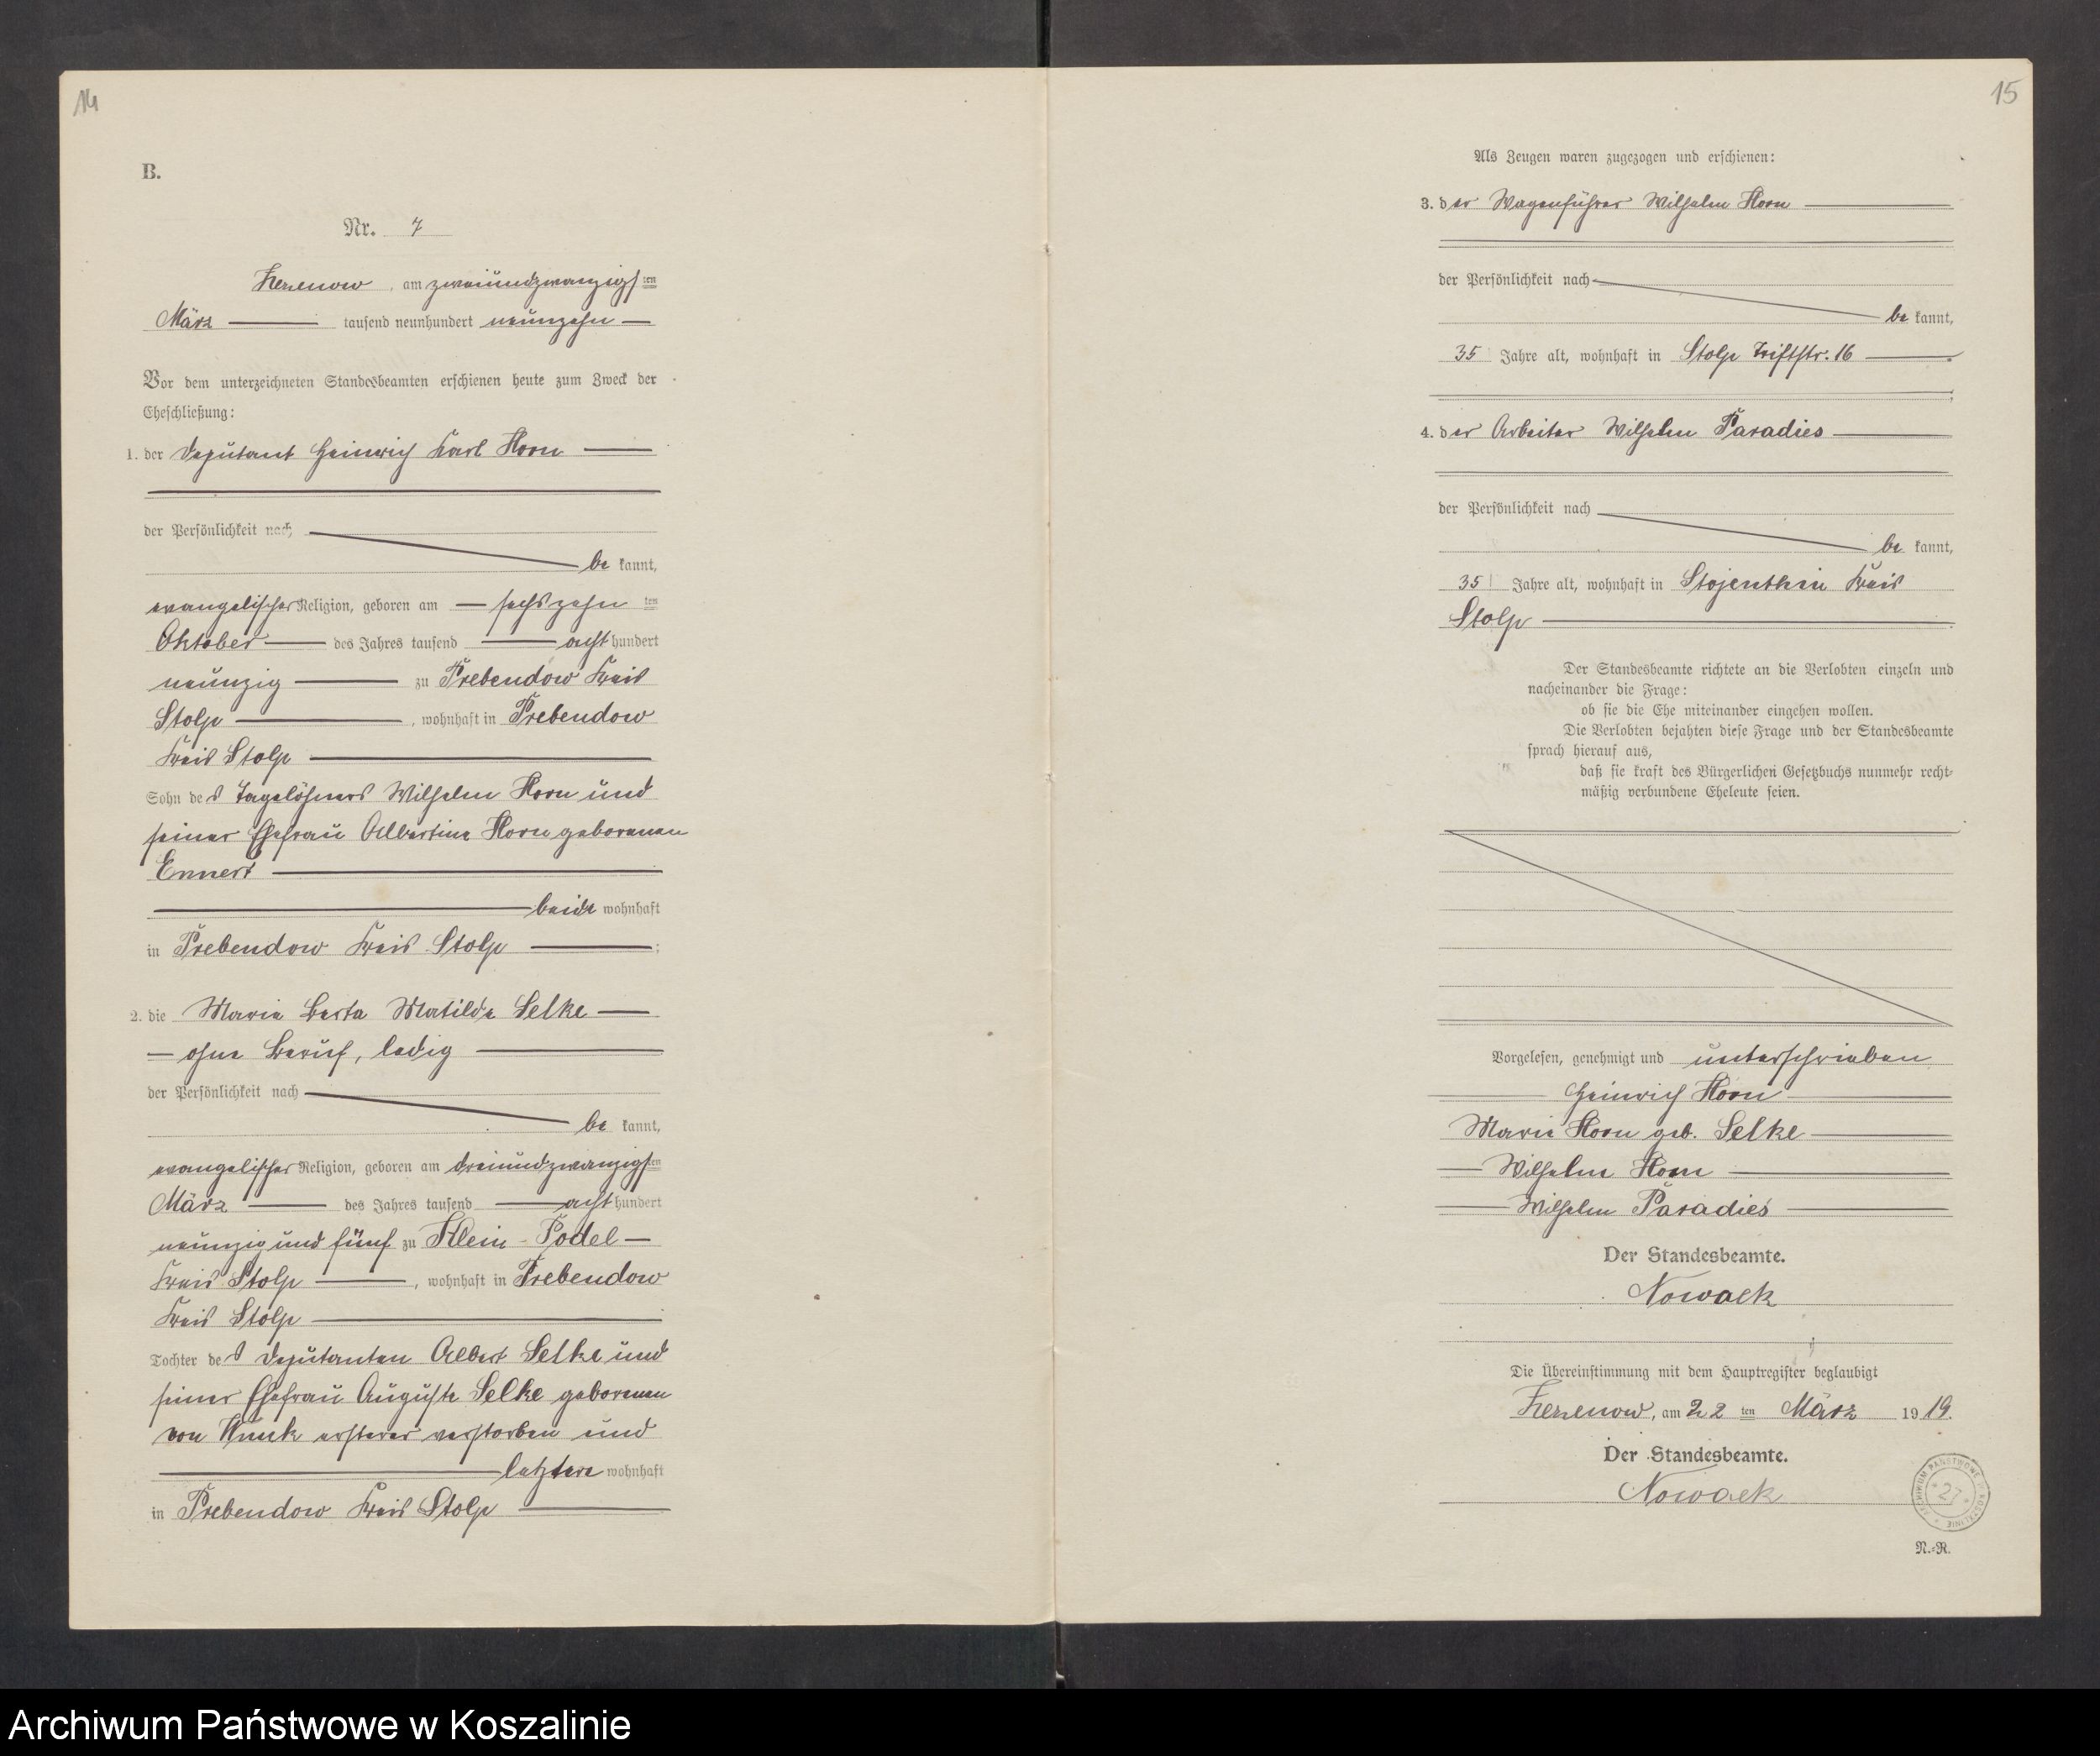 14
B.
Nr. 7
Zezenow, am zweiundzwanzigsten
März tausend neunhundert neunzehn
Vor dem unterzeichneten Standesbeamten erschienen heute zum Zweck der
Eheschließung:
1. der Deputant Heinrich Karl Horn
der Persönlichkeit nach
be kannt,
evangelischer Religion, geboren am sechszehn ten
Oktober des Jahres tausend acht hundert
neunzig zu Prebendow Kreis
Stolp, wohnhaft in Prebendow
Kreis Stolp
Sohn des Tagelöhners Wilhelm Horn und
seiner Ehefrau Albertine Horn geborenen
Ennert
beide wohnhaft
in Prebendow Kreis Stolp ;
2. die Marie Berta Matilde Selke
ohne Beruf, ledig
der Persönlichkeit nach
be kannt,
evangelischer Religion, geboren am dreiundzwanzigsten
März des Jahres tausend acht hundert
neunzig und fünf zu Klein-Podel
Kreis Stolp, wohnhaft in Prebendow
Kreis Stolp
Tochter des Deputanten Albert Selke und
seiner Ehefrau Auguste Selke geborenen
von ersterer verstorben und
letztere wohnhaft
in Prebendow Kreis Stolp
15
Als Zeugen waren zugezogen und erschienen:
3. der Wagenführer Wilhelm Horn
der Persönlichkeit nach
be kannt,
35 Jahre alt, wohnhaft in Stolp Triftstr. 16
4. der Arbeiter Wilhelm Paradies
der Persönlichkeit nach
be kannt,
35 Jahre alt, wohnhaft in Stojenthin Kreis
Stolp
Der Standesbeamte richtete an die Verlobten einzeln und
nacheinander die Frage:
ob sie die Ehe miteinander eingehen wollen.
Die Verlobten bejahten diese Frage und der Standesbeamte
sprach hierauf aus,
daß sie kraft des Bürgerlichen Gesetzbuchs nunmehr recht-
mäßig verbundene Eheleute seien.
Vorgelesen, genehmigt und unterschrieben
Heinrich Horn
Marie Horn geb. Selke
Wilhelm Horn
Wilhelm Paradies
Der Standesbeamte.
Nowack
Die Übereinstimmung mit dem Hauptregister beglaubigt
Zezenow, am 22 ten März 1919.
Der Standesbeamte.
Nowack
ARCHIWUM PAŃSTWOWE W KOSZALINIE
27
N.-R.
Archiwum Państwowe w Koszalinie